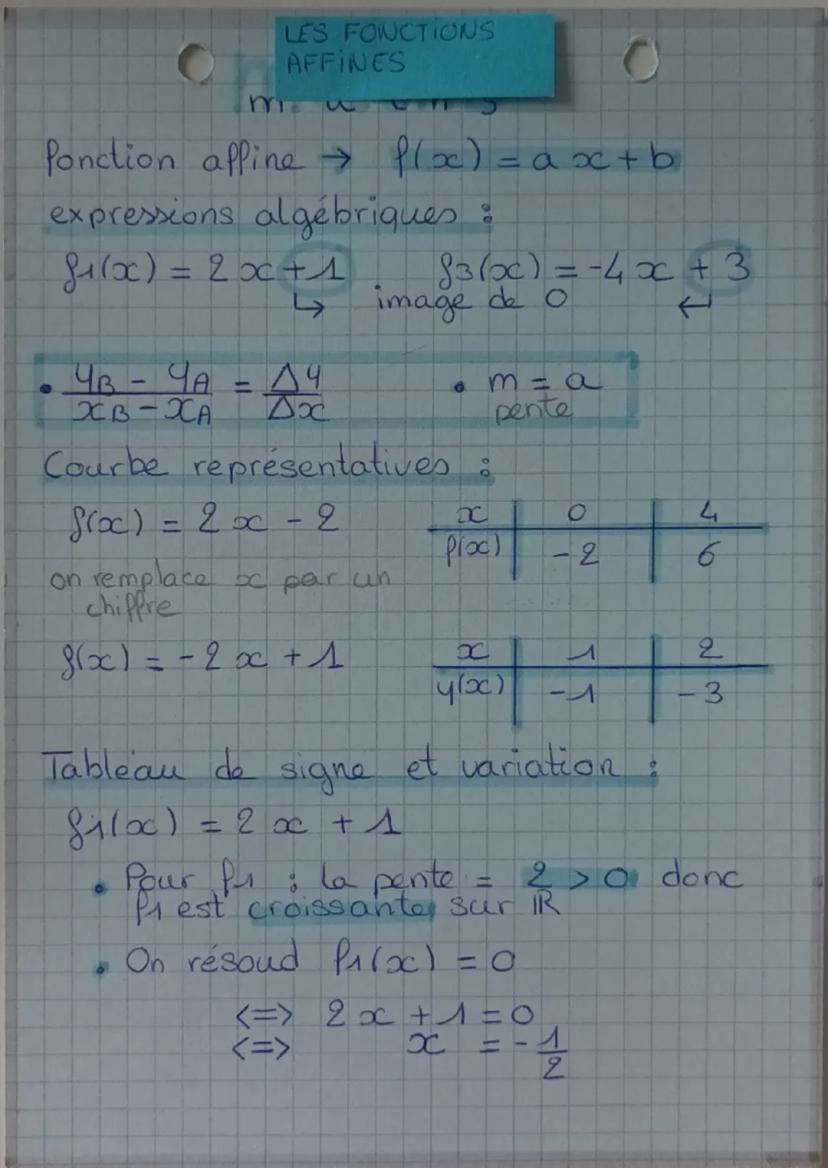 LES FONCTIONS
AFFINES
fonction affine → f(x) = a x + b
expressions algébriques :
f1(x) = 2 x + 1 f3(x) = -4 x + 3
↳ image de 0 ↵
• yB - yA / xB - xA = Δy / Δx • m = a
pente
Courbe représentatives :
f(x) = 2 x - 2
x | 0 | 4
f(x) | -2 | 6
on remplace x par un
chiffre
f(x) = -2 x + 1
x | 1 | 2
y(x) | -1 | -3
Tableau de signe et variation :
f1(x) = 2 x + 1
• Pour f1 : la pente = 2 > 0 donc
f1 est croissante sur ℝ
• On résoud f1(x) = 0
<=> 2 x + 1 = 0
<=> x = - 1/2